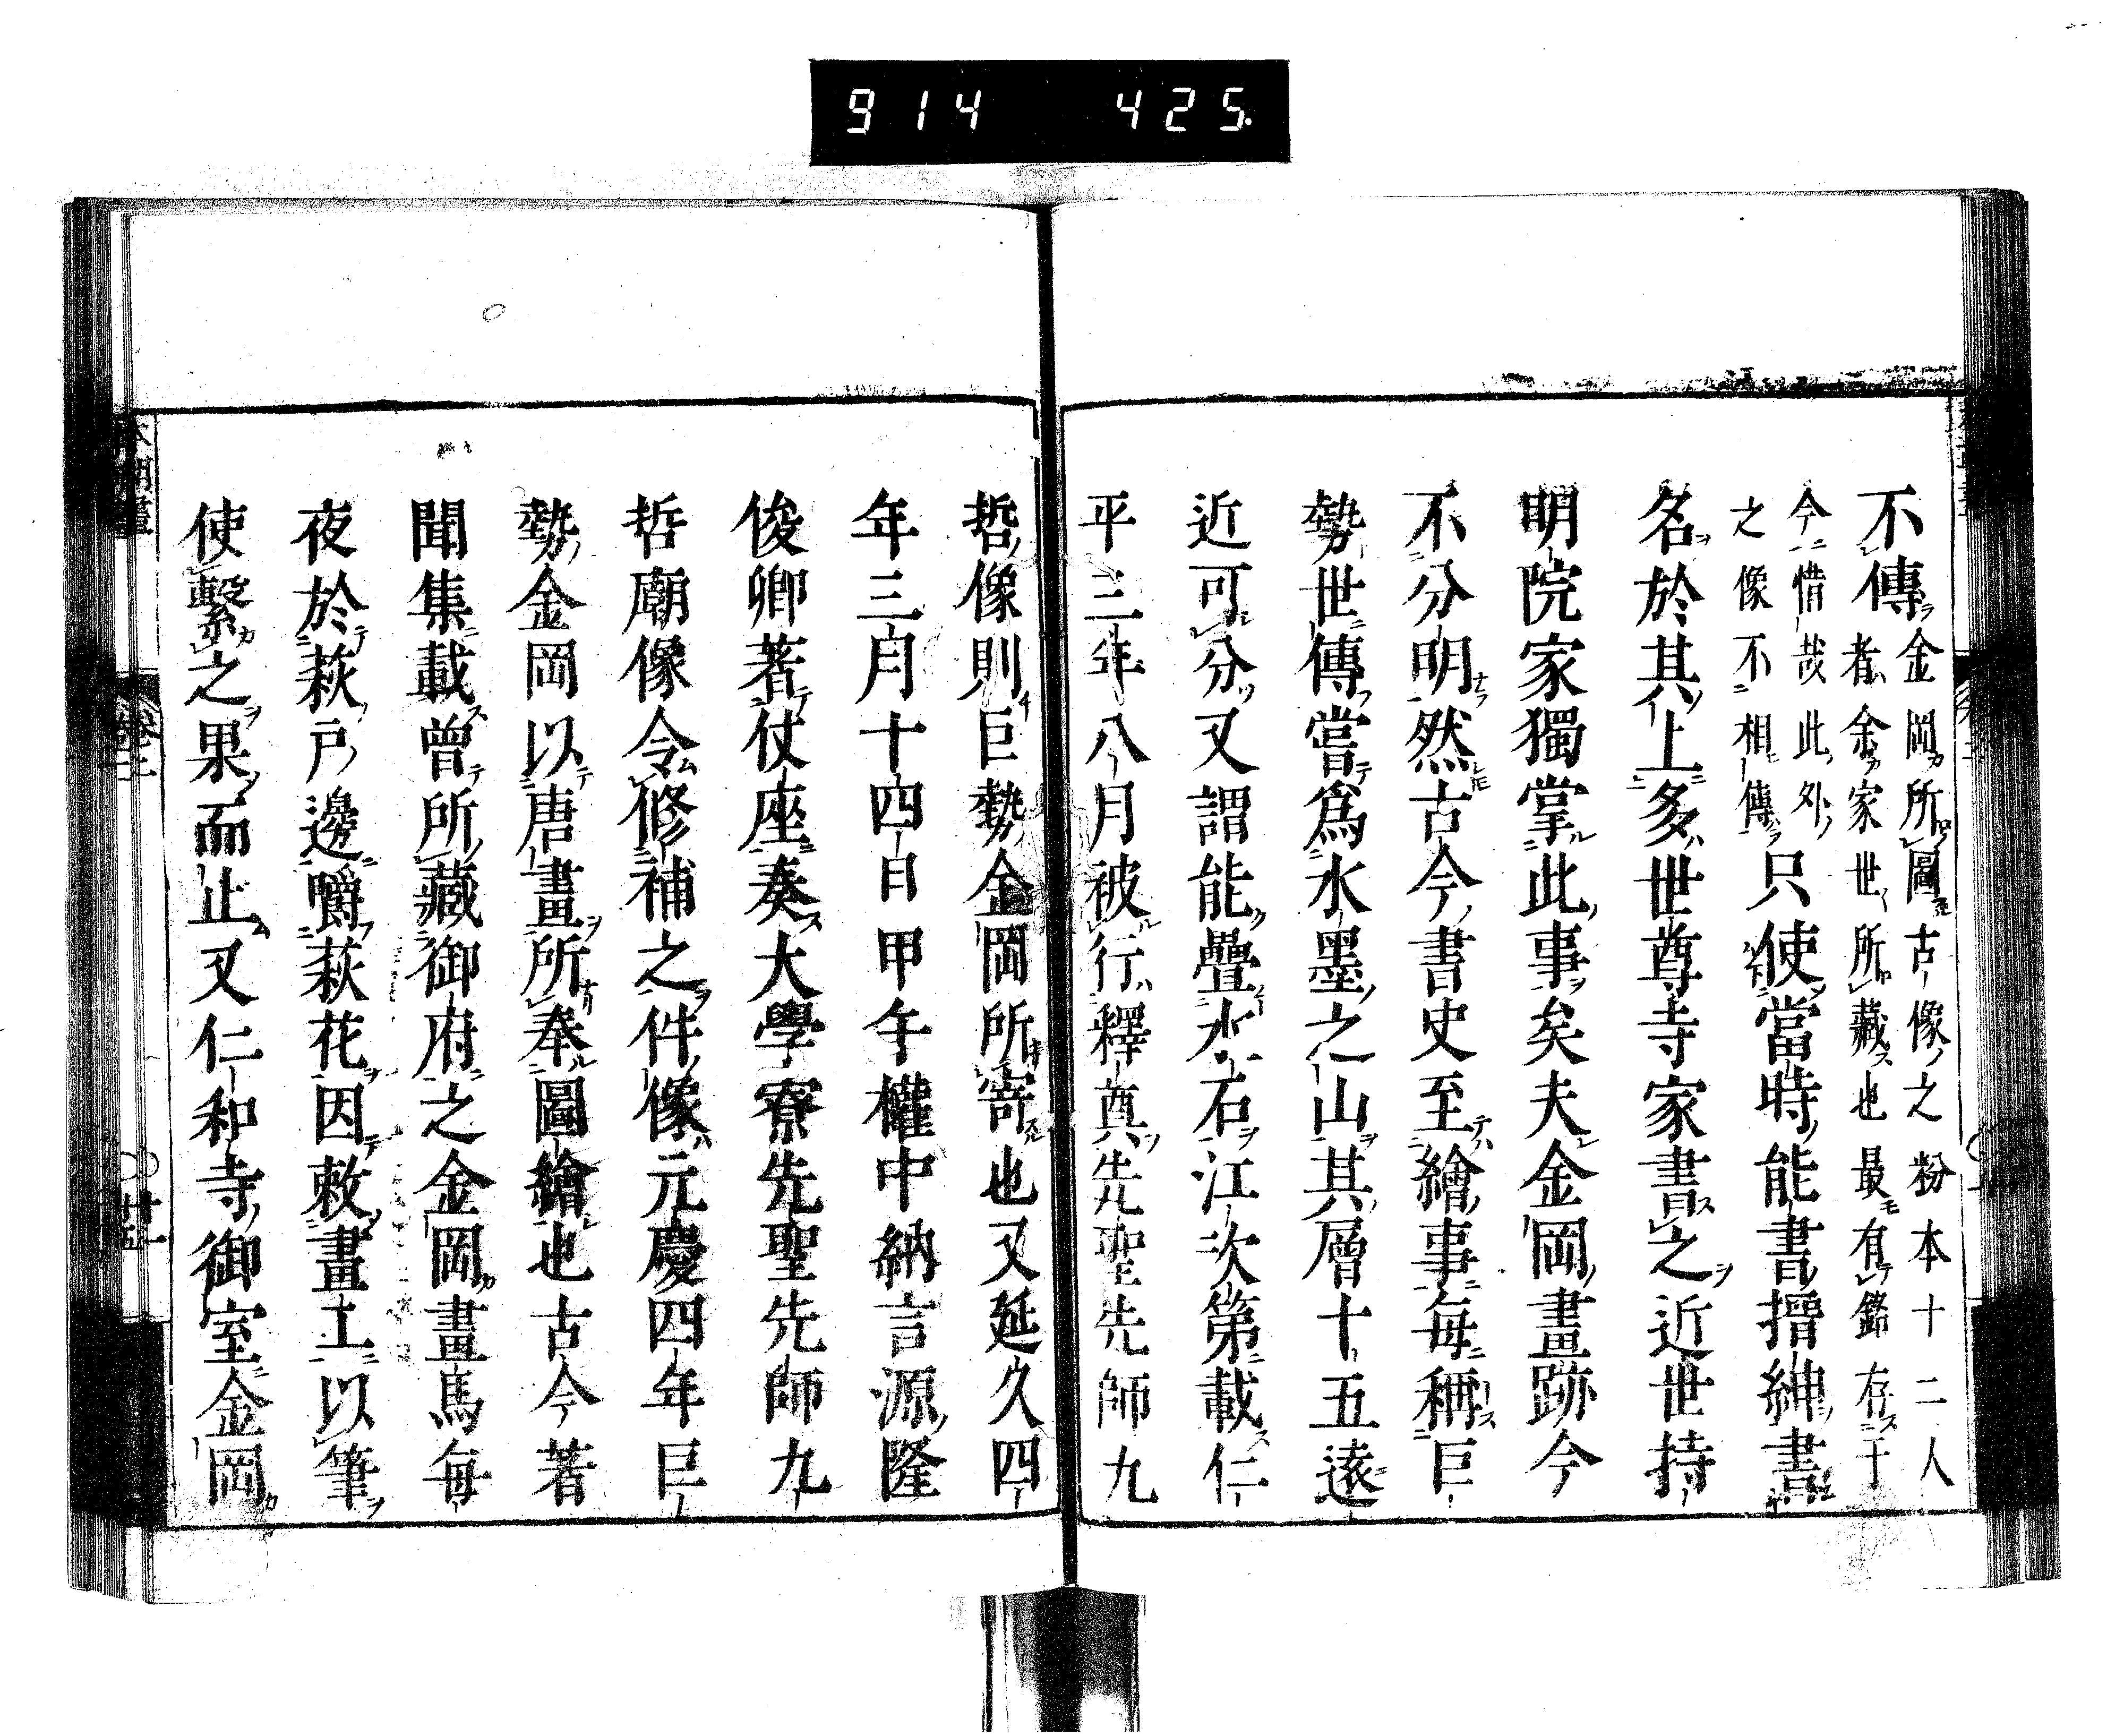 914 425
不傳金岡所圖古像之粉本十二人
者余家世所藏也最有銘存于
今惜哉此外
之像不相傳只使當時能書搢紳書
名於其上多世尊寺家書之近世持
明院家獨掌此事矣夫金岡畫跡今
不分明然古今書史至繪事毎稱巨
勢世傳嘗爲水墨之山其層十五遠
近可分又謂能疊水石江次第載仁
平三年八月被行釋奠先聖先師九
哲像則巨勢金岡所寄也又延久四
年三月十四日甲午權中納言源隆
俊卿著仗座奏大學寮先聖先師九
哲廟像令修補之件像元慶四年巨
勢金岡以唐畫所奉圖繪也古今著
聞集載曾所藏御府之金岡畫馬毎
夜於萩戶邊嚼萩花因敕畫工以筆
使繫之果而止又仁和寺御室金岡
本朝畫
卷二
廿一